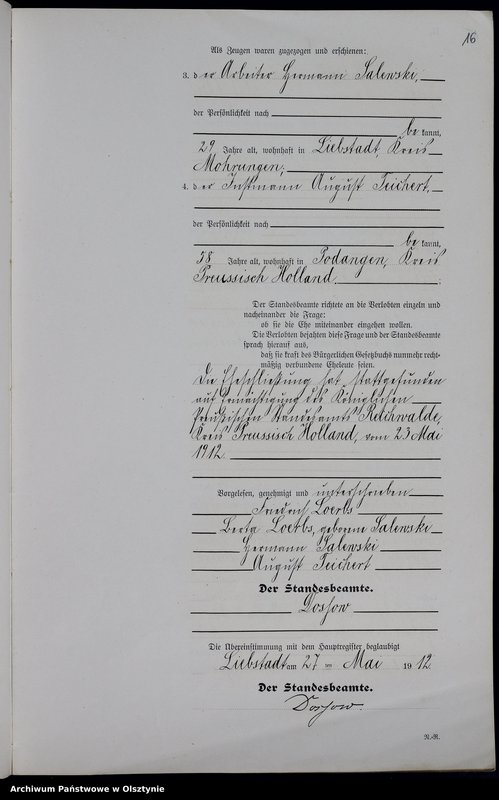 16
Als Zeugen waren zugezogen und erschienen:
3. der Arbeiter Hermann Salewski,
der Persönlichkeit nach
bekannt,
29 Jahre alt, wohnhaft in Liebstadt, Kreis
Mohrungen;
4. der Instmann August Teichert,
der Persönlichkeit nach
bekannt,
38 Jahre alt, wohnhaft in Podangen, Kreis
Preussisch Holland.
Der Standesbeamte richtete an die Verlobten einzeln und
nacheinander die Frage:
ob sie die Ehe miteinander eingehen wollen.
Die Verlobten bejahten diese Frage und der Standesbeamte
sprach hierauf aus,
daß sie kraft des Bürgerlichen Gesetzbuchs nunmehr recht-
mäßig verbundene Eheleute seien.
Die Eheschließung hat stattgefunden
auf Ermächtigung des Königlichen
Preußischen Standesamts Reichwalde,
Kreis Preussisch Holland, vom 23 Mai
1912.
Vorgelesen, genehmigt und unterschrieben
Friedrich Loerbs
Berta Loerbs, geborene Salewski
Hermann Salewski
August Teichert
Der Standesbeamte.
Dossow
Die Übereinstimmung mit dem Hauptregister beglaubigt
Liebstadt am 27 ten Mai 1912.
Der Standesbeamte.
Dossow.
R.-R.
Archiwum Państwowe w Olsztynie